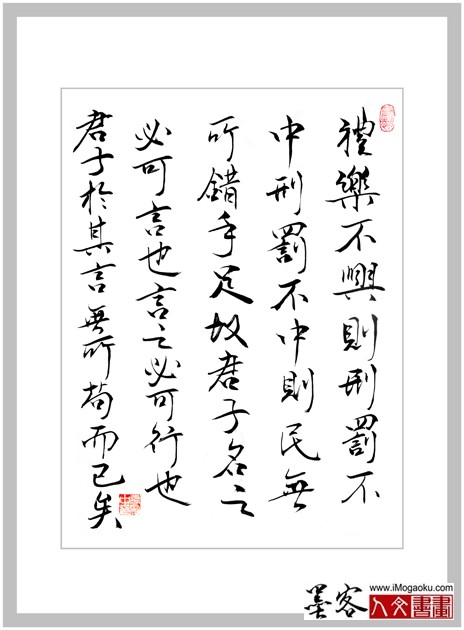 禮樂不興則刑罰不
中刑罰不中則民無
所錯手足故君子名之
必可言也言之必可行也
君子於其言無所苟而已矣
墨客
www.iMogaoku.com
人文書畫